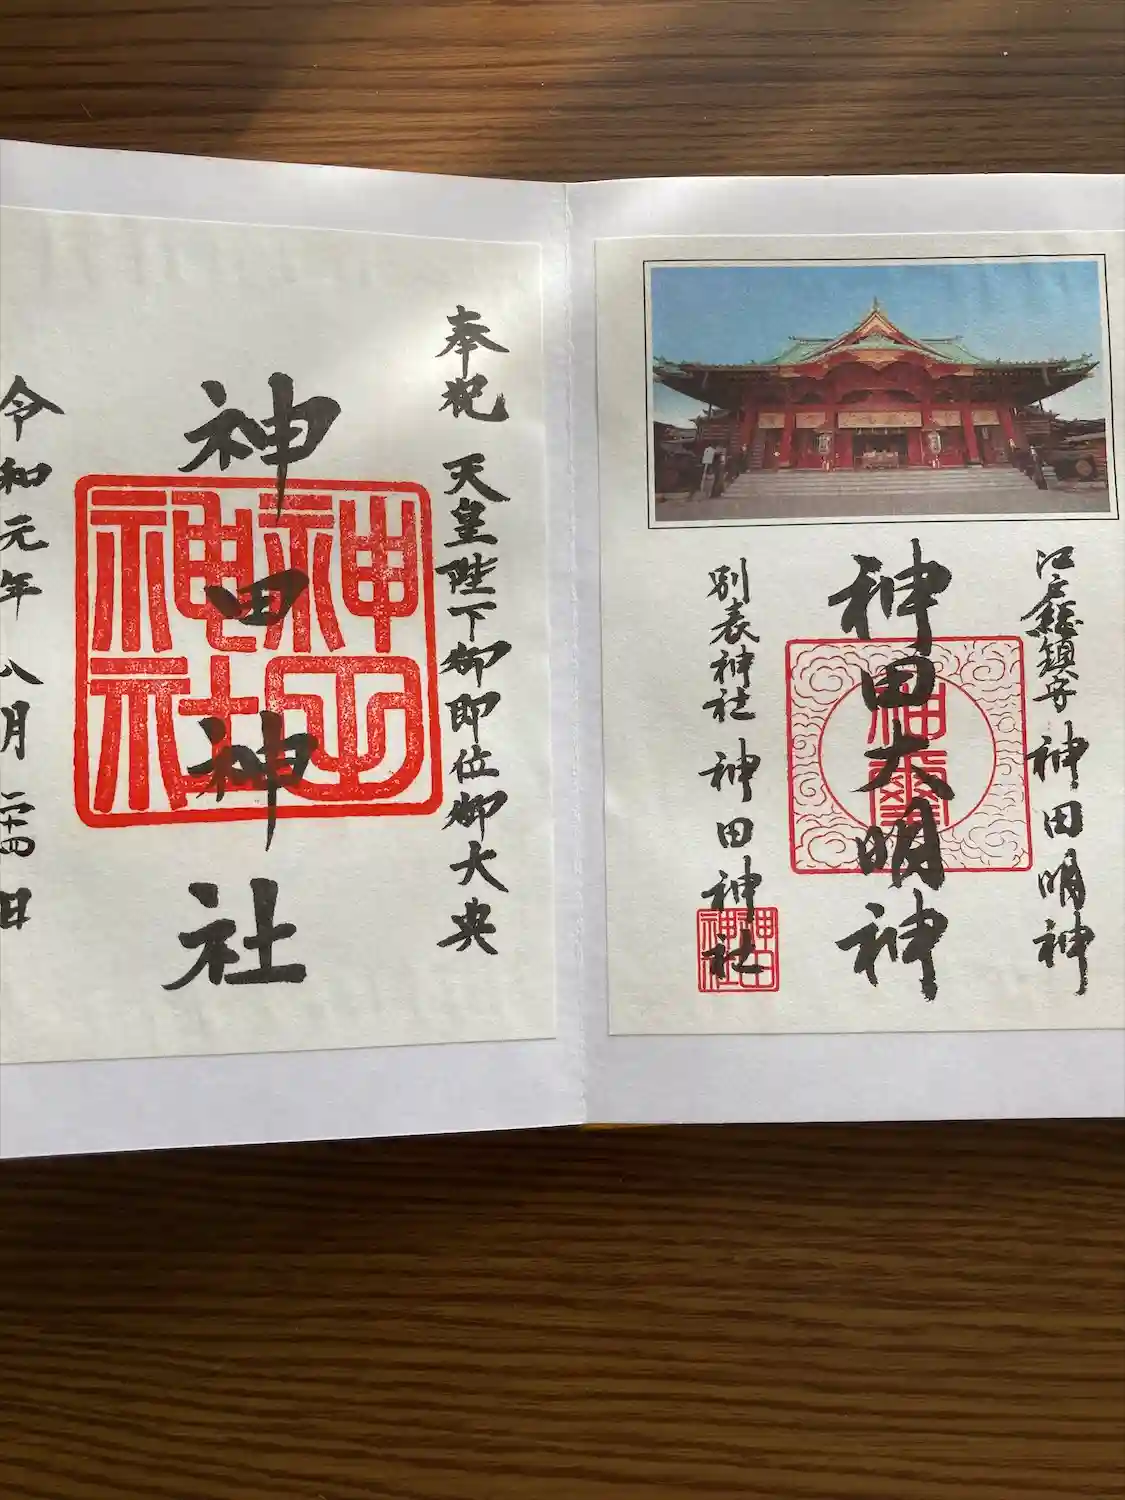 江戸総鎮守 神田明神
神田大明神
神璽
別表神社 神田神社
神田神社
奉祝 天皇陛下御即位御大典
神田神社
神田神社
令和元年 八月 二十四日